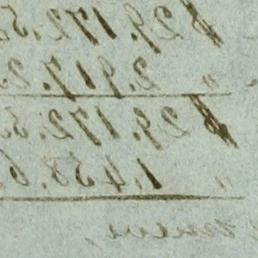 $ 29.172.5
" 2.917.2
$ 29.172.5
" 1.458.6